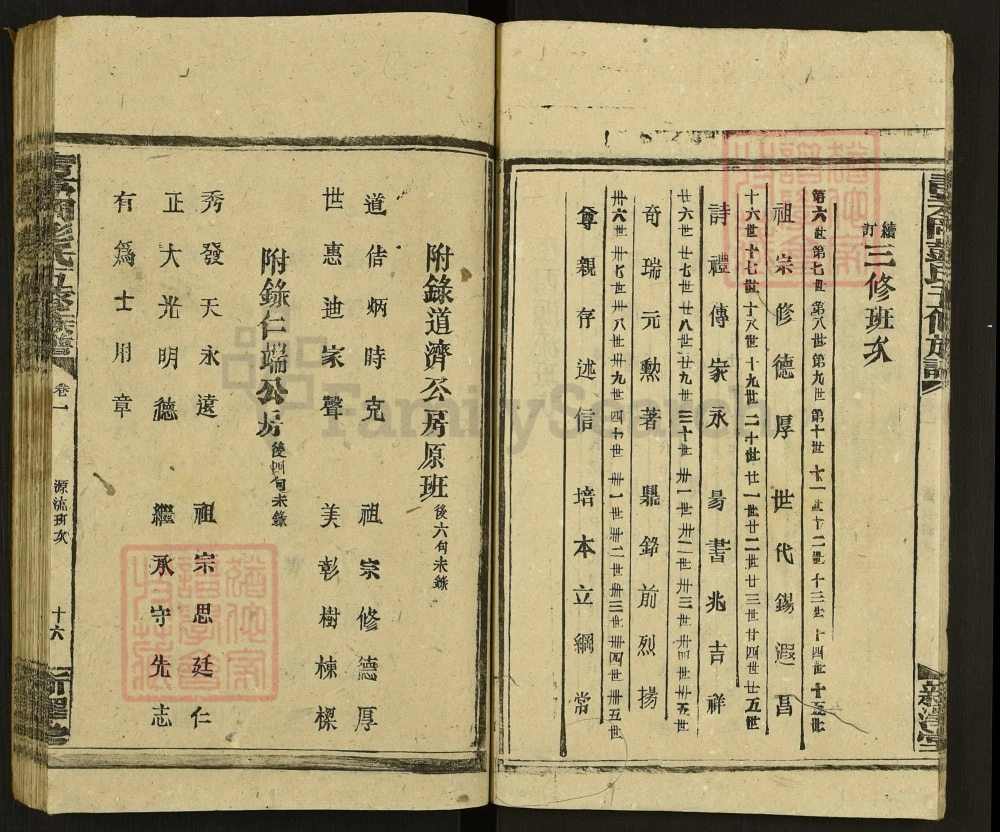 續訂三修班次
第六世第七世第八世第九世第十世十一世十二世十三世十四世十五世
祖宗修德厚世代錫遐昌
十六世十七世十八世十九世二十世廿一世廿二世廿三世廿四世廿五世
詩禮傳家永易書兆吉祥
廿六世廿七世廿八世廿九世三十世卅一世卅二世卅三世卅四世卅五世
奇瑞元勲著鼎銘前烈揚
卅六世卅七世卅八世卅九世四十世卌一世卌二世卌三世卌四世卌五世
尊親存述信培本立綱常
附錄道濟公房原班後六句未錄
道佸炳時克祖宗修德厚
世惠迪家聲美彰樹棟樑
附錄仁端公房後四句未錄
秀發天永遠祖宗思廷仁
正大光明德繼承守先志
有爲士用章
五修族譜
卷一
源流班次
十六
FamilySearch